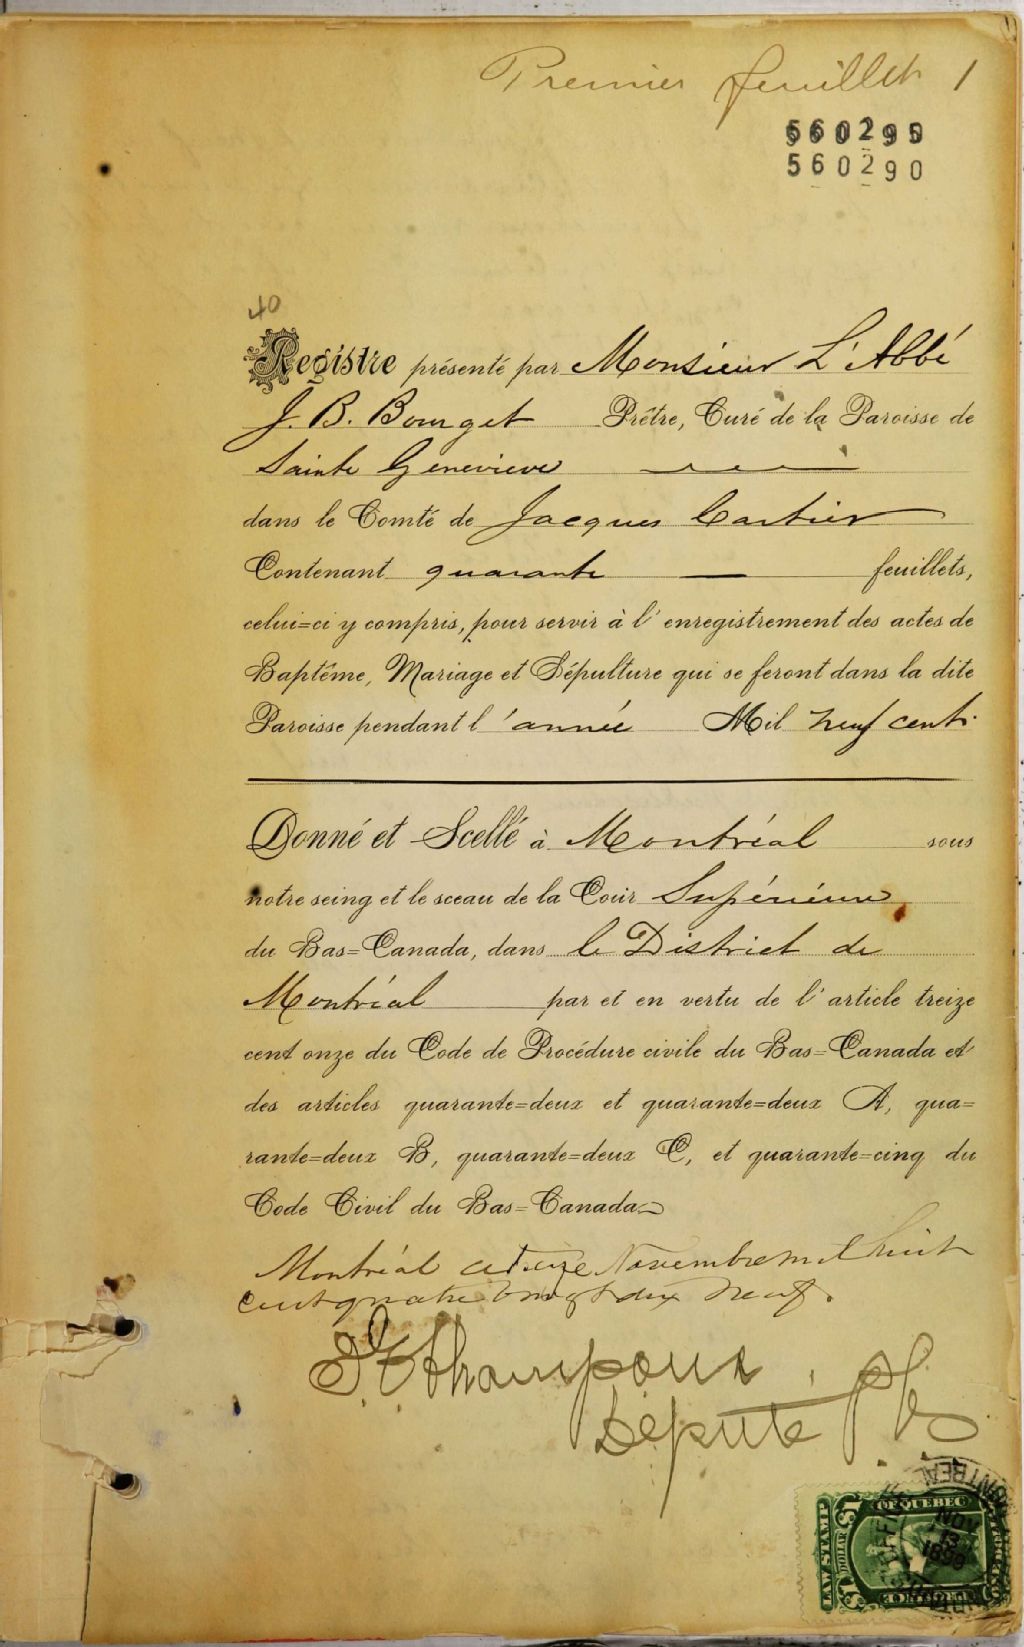 Premier feuillet 1
560295
560290
40
Registre présenté par Monsieur L'Abbé
J. B. Bourget Prêtre, Curé de la Paroisse de
Sainte Genevieve
dans le Comté de Jacques Cartier
Contenant quarante feuillets,
celui=ci y compris, pour servir à l'enregistrement des actes de
Baptême, Mariage et Sépulture qui se feront dans la dite
Paroisse pendant l'année Mil neuf cent.
Donné et Scellé à Montréal sous
notre seing et le sceau de la Cour Supérieure
du Bas=Canada, dans le District de
Montréal par et en vertu de l'article treize
cent onze du Code de Procédure civile du Bas=Canada et
des articles quarante=deux et quarante=deux A, qua=
rante=deux B, quarante=deux C, et quarante=cinq du
Code Civil du Bas=Canada
Montréal ce treize Novembre mil huit
cent quatre vingt dix neuf.
Champoux
Député P
LAW STAMP
$1 DOLLAR $1
OF QUEBEC
MONTREAL
NOV
13
1899